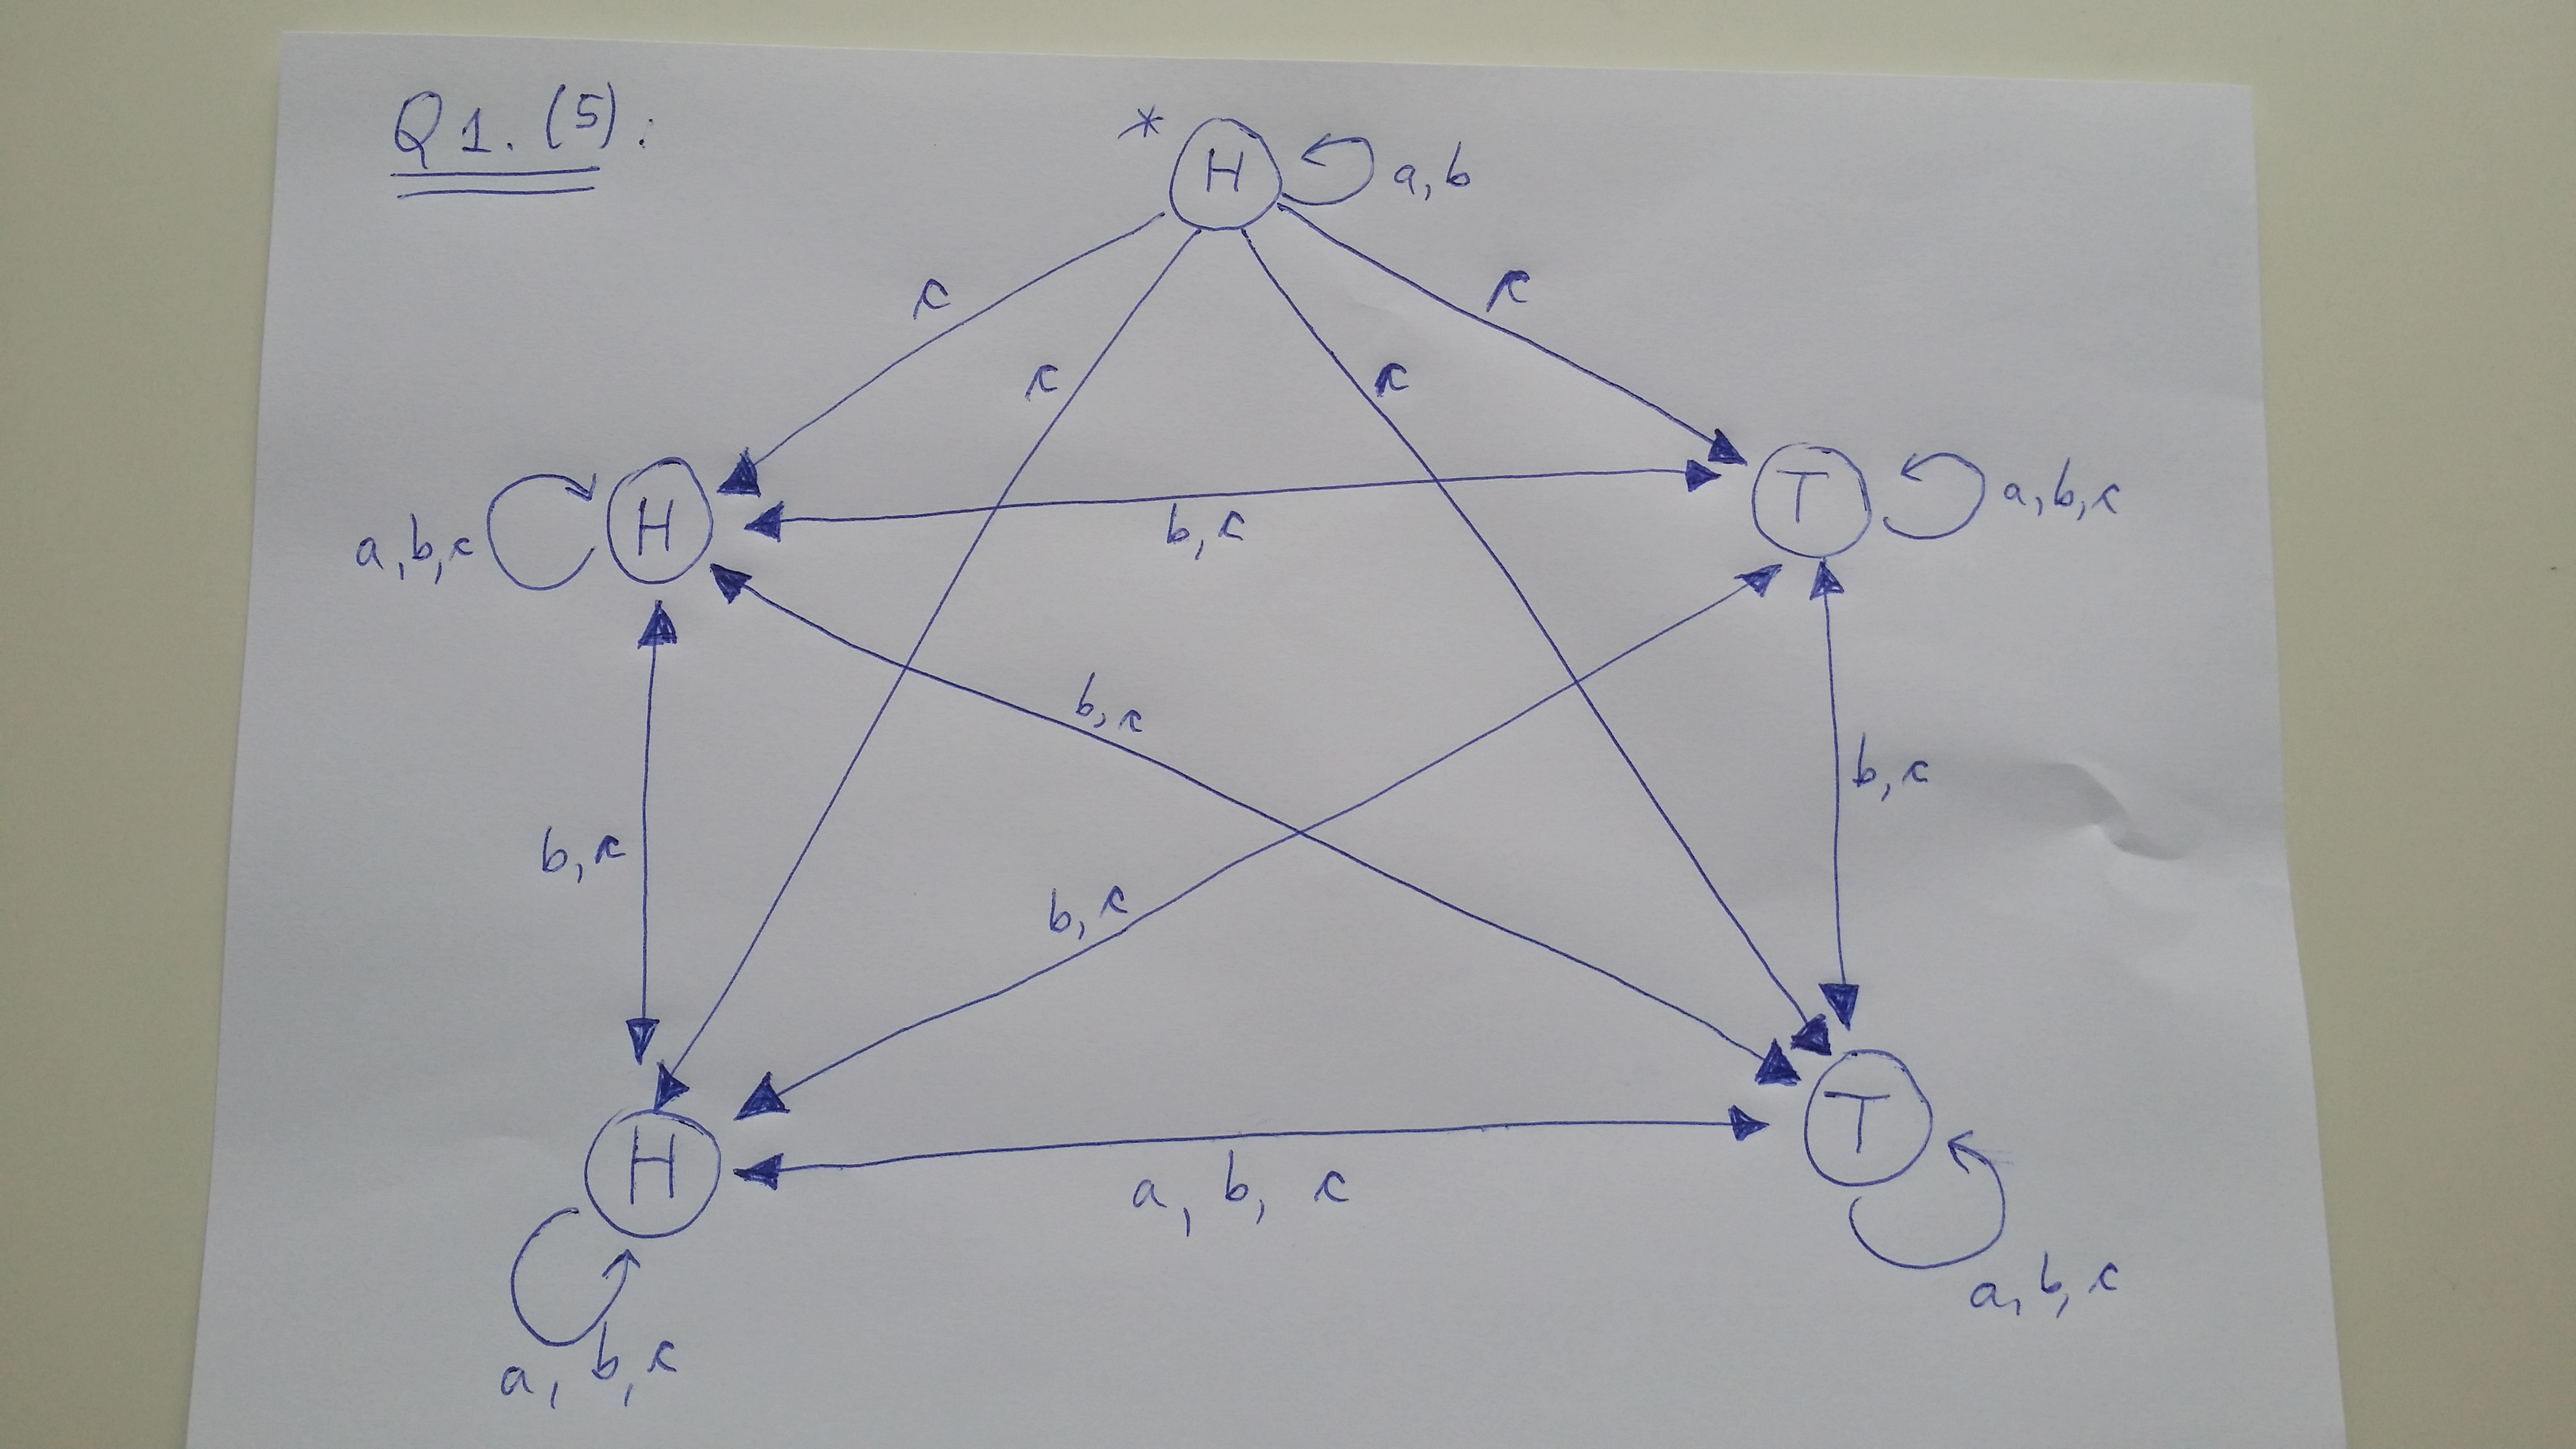 Q1. (5):
* H a, b
c c
c c
H T
a, b, c a, b, c
b, c
b, c
b, c
b, c
b, c
H T
a, b, c
a, b, c
a, b, c